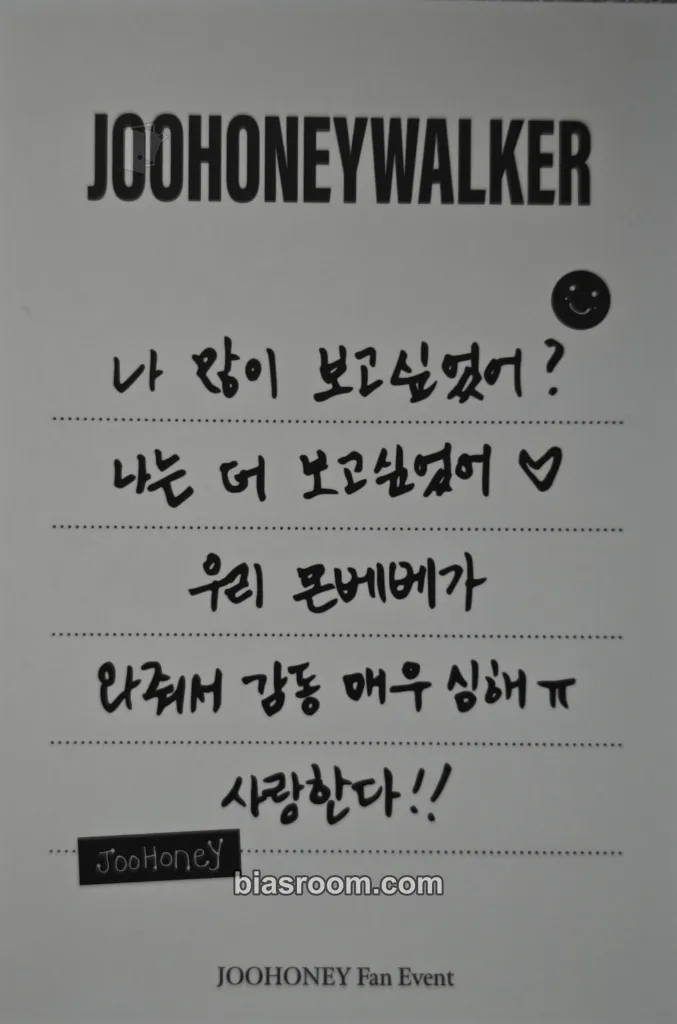 JOOHONEYWALKER
나 많이 보고싶었어?
나는 더 보고싶었어 ♡
우리 몬베베가
와줘서 감동 매우 심해 ㅠ
사랑한다!!
JooHoney
biasroom.com
JOOHONEY Fan Event